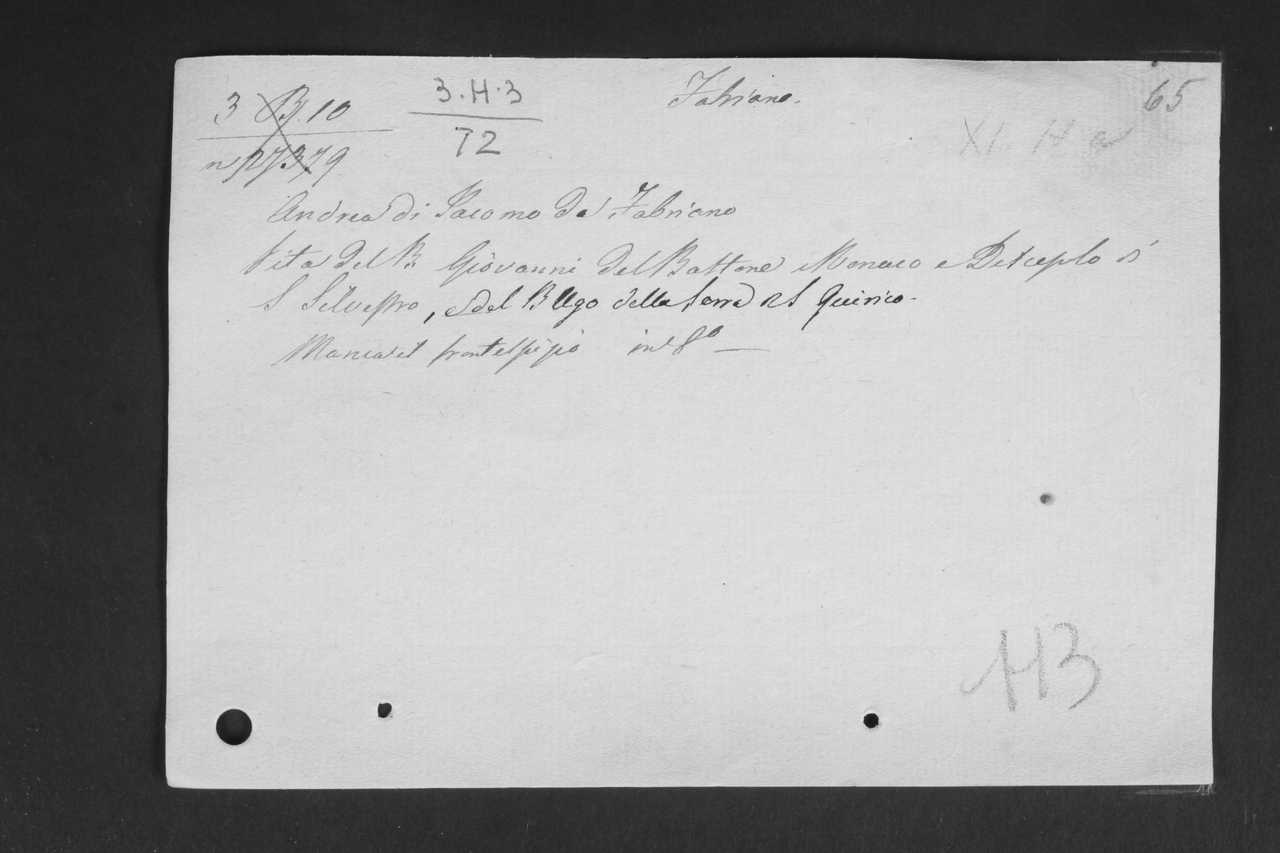 3 B. 10
n 27379
3.H.3
72
Fabriano.
65
XI. H a
Andrea di Jacomo da Fabriano
Vita del B. Giovanni del Bastone Monaco e Discepolo di
S Silvestro, e del B Ugo della terra di S Quirico.
Manca il frontespizio in 8º —
113